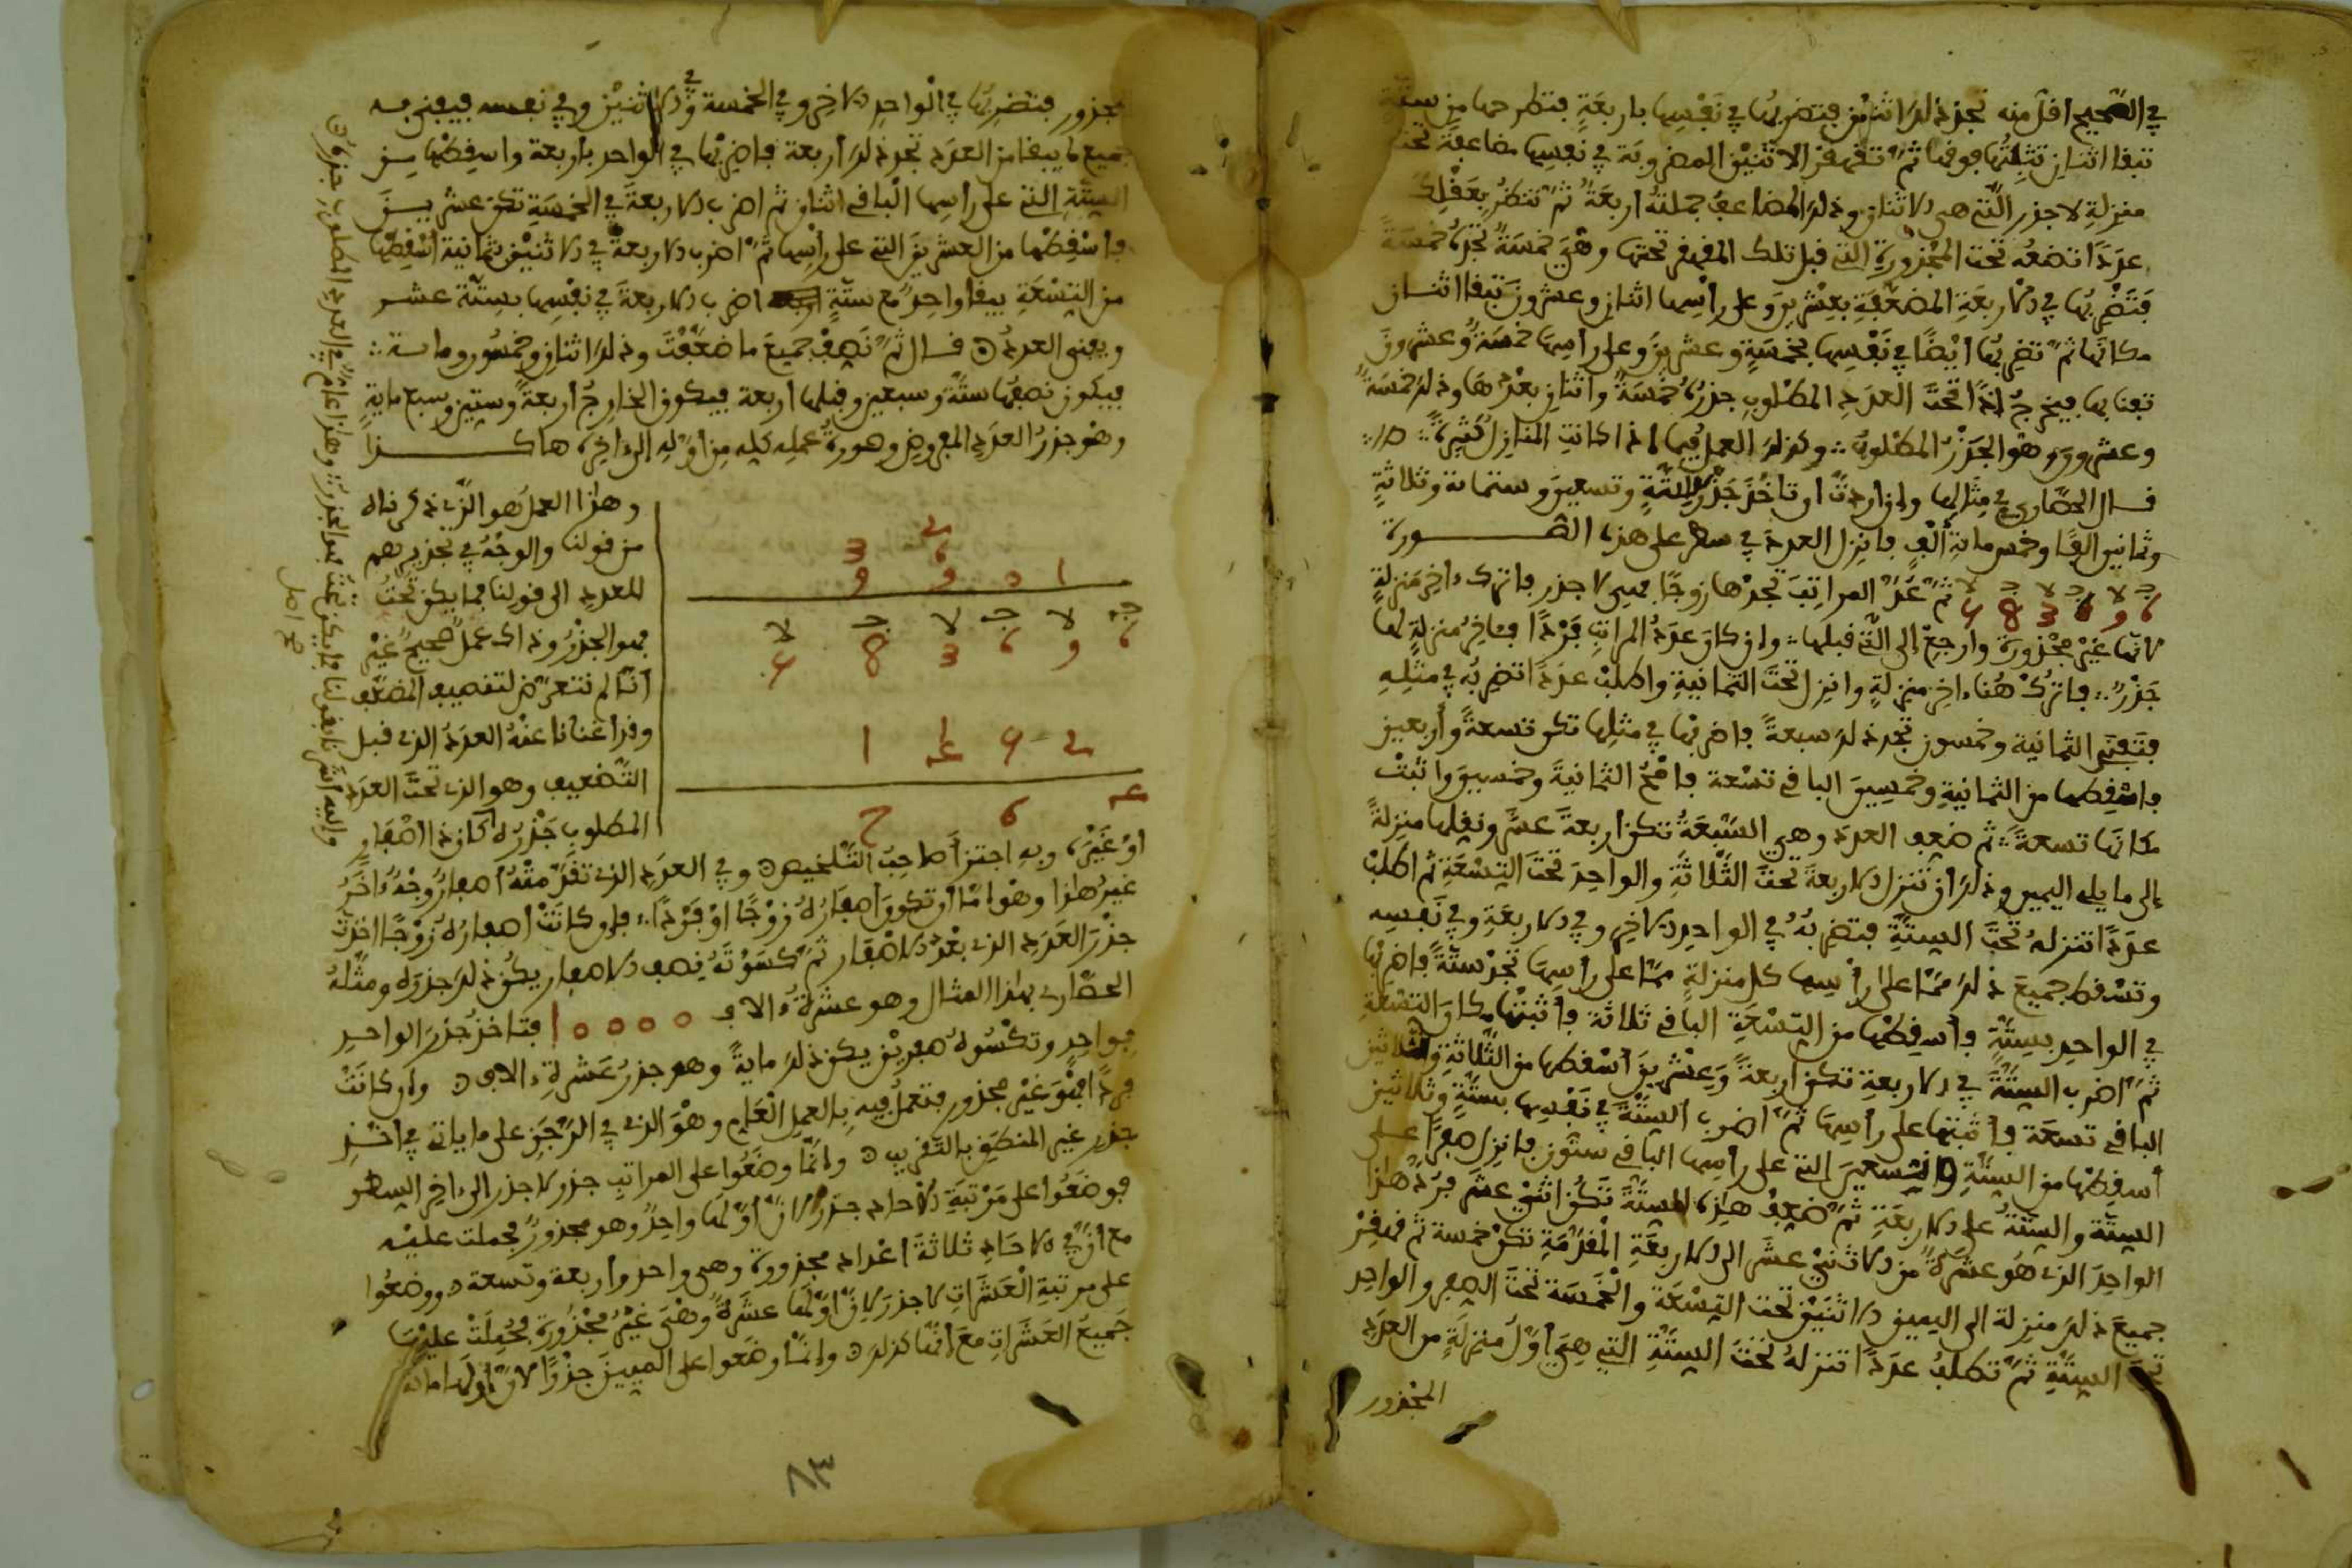 في الصحيح اقل منه تجد ذلك اثنين فتضربها في نفسها باربعة فتطرحها من ستة
تبقا اثنان تثبتها فوقها ثم تقهقر الاثنين المضروبة في نفسها مضاعفة تحت
منزلة لا جذر التي هي الاثنان وذلك المضاعف جملته اربعة ثم تنظر بعقلك
عددا تضعه تحت المجذورة التي قبل تلك المقهقر تحتها وهي خمسة تجده خمسة
فتضربها في الاربعة المضعفة بعشرين وعلى راسها اثنان وعشرون تبقا اثنان
مكانها ثم تضربها ايضا في نفسها بخمسة وعشرين وعلى راسها خمسة وعشرون
تفنا بها فيخرج اذا تحت العدد المطلوب جذره خمسة واثنان بعدها وذلك خمسة
وعشرون وهو الجذر المطلوب وكذلك العمل فيها اذا كانت المنازل كثيرة
قال الحصاري في مثالها وان اردت ان تاخذ جذر ستة وتسعين وستمائة وثلاثة
وثمانين الفا وخمس مائة الف فانزل العدد في سطر على هذه الصورة
ثم عد المراتب تجدها زوجا فهي لا جذر فاترك ءاخر منزلة
لانها غير مجذورة وارجع الى التي قبلها وان كان عدد المراتب فردا فـاخر منزلة لها
جذر فاترك هنا ءاخر منزلة وانزل تحت الثمانية واطلب عددا تضربه في مثله
فتفني الثمانية وخمسون تجد ذلك سبعة فاضربها في مثلها تكن تسعة وأربعين
فاسقطها من الثمانية وخمسين الباقي تسعة فامح الثمانية وخمسين واثبت
مكانها تسعة ثم ضعف العدد وهي السبعة تكن اربعة عشر ونقلها منزلة
الى ما يلي اليمين وذلك ان تنزل الاربعة تحت الثلاثة والواحد تحت التسعة ثم اطلب
عددا تنزله تحت الستة فتضربه في الواحد الاخر وفي الاربعة وفي نفسه
وتسقط جميع ذلك مما على راسها كل منزلة مما على راسها تجد ستة فاضربها
في الواحد بستة فاسقطها من التسعة الباقي ثلاثة فاثبتها مكان التسعة
ثم اضرب الستة في الاربعة تكن اربعة وعشرين اسقطها من الثلاثة والثلاثين
الباقي تسعة فاثبتها على راسها ثم اضرب الستة في نفسها بستة وثلاثين
أسقطها من الستة والتسعين التي على راسها الباقي ستون فانزل صفرا على
الستة والستة على الاربعة ثم ضعف هذه الستة تكن اثني عشر فرد هذا
الواحد الذي هو عشرة من الاثني عشر الى الاربعة المقدمة تكن خمسة ثم قهقر
جميع ذلك منزلة الى اليمين الاثنين تحت التسعة والخمسة تحت الصفر والواحد
تحت الستة ثم تطلب عددا تنزله تحت الستة التي هي أول منزلة من العدد
المجذور
مجذور فتضربها في الواحد الاخر وفي الخمسة وفي الاثنين وفي نفسه فيفنى به
جميع ما يبقا من العدد تجد ذلك أربعة فاضربها في الواحد بأربعة واسقطها من
الستة التي على راسها الباقي اثنان ثم اضرب الاربعة في الخمسة تكن عشرين
فاسقطها من العشرين التي على راسها ثم اضرب الاربعة في الاثنين بثمانية اسقطها
من التسعة يبقا واحد مع ستة اضرب الاربعة في نفسها بستة عشر
ويفنى العدد قال ثم نصف جميع ما ضعفت وذلك اثنان وخمسون ومائة
فيكون نصفها ستة وسبعين وقبلها اربعة فيكون الخارج اربعة وستين وسبع ماية
وهو جذر العدد المفروض وصورة عمله كله من اوله الى ءاخره هاكذا
وهذا العمل هو الذي ذكرناه
من قولنا والوجه في تجذيرهم
للعدد الى قولنا فما يكن تحت
فهو الجذر وذاك عمل صحيح غير
انا لم نتعرض لتنصيف المضعف
وقد اغنانا عنه العدد الذي قبل
التضعيف وهو الذي تحت العدد
المطلوب جذره كان ذا اصفار
او غيره وبه اجتزأ صاحب التلخيص وفي العدد الذي تقدمته اصفار وجه ءاخر
غير هذا وهو اما ان تكون أصفاره زوجا او فردا فان كانت أصفاره زوجا اخذت
جذر العدد الذي بعد الاصفار ثم كسوته نصف الاصفار يكن ذلك جذره ومثله
الحصاري بهذا المثال وهو عشرة ءالاف 10000 فتاخذ جذر الواحد
فواحد وتكسوه صفرين يكن ذلك ماية وهو جذر عشرة ءالاف وان كانت
فردا فهو غير مجذور فتعمل فيه بالعمل العام وهو الذي في الرجز على ما ياتي في اخذ
جذر غير المنطق بالتقريب وانما وضعوا على المراتب جذر لا جذر الى ءاخر السطر
فوضعوا على مرتبة الاحاد جذر لان أولها واحد وهو مجذور فحملت عليه
مع ان في الاحاد ثلاثة اعداد مجذورة وهي واحد واربعة وتسعة ووضعوا
على مرتبة العشرات لا جذر لان اولها عشرة وهي غير مجذورة فحملت عليها
جميع العشرات مع انها كذلك وانما وضعوا على المئين جذرا لان اولها مائة
٨٣